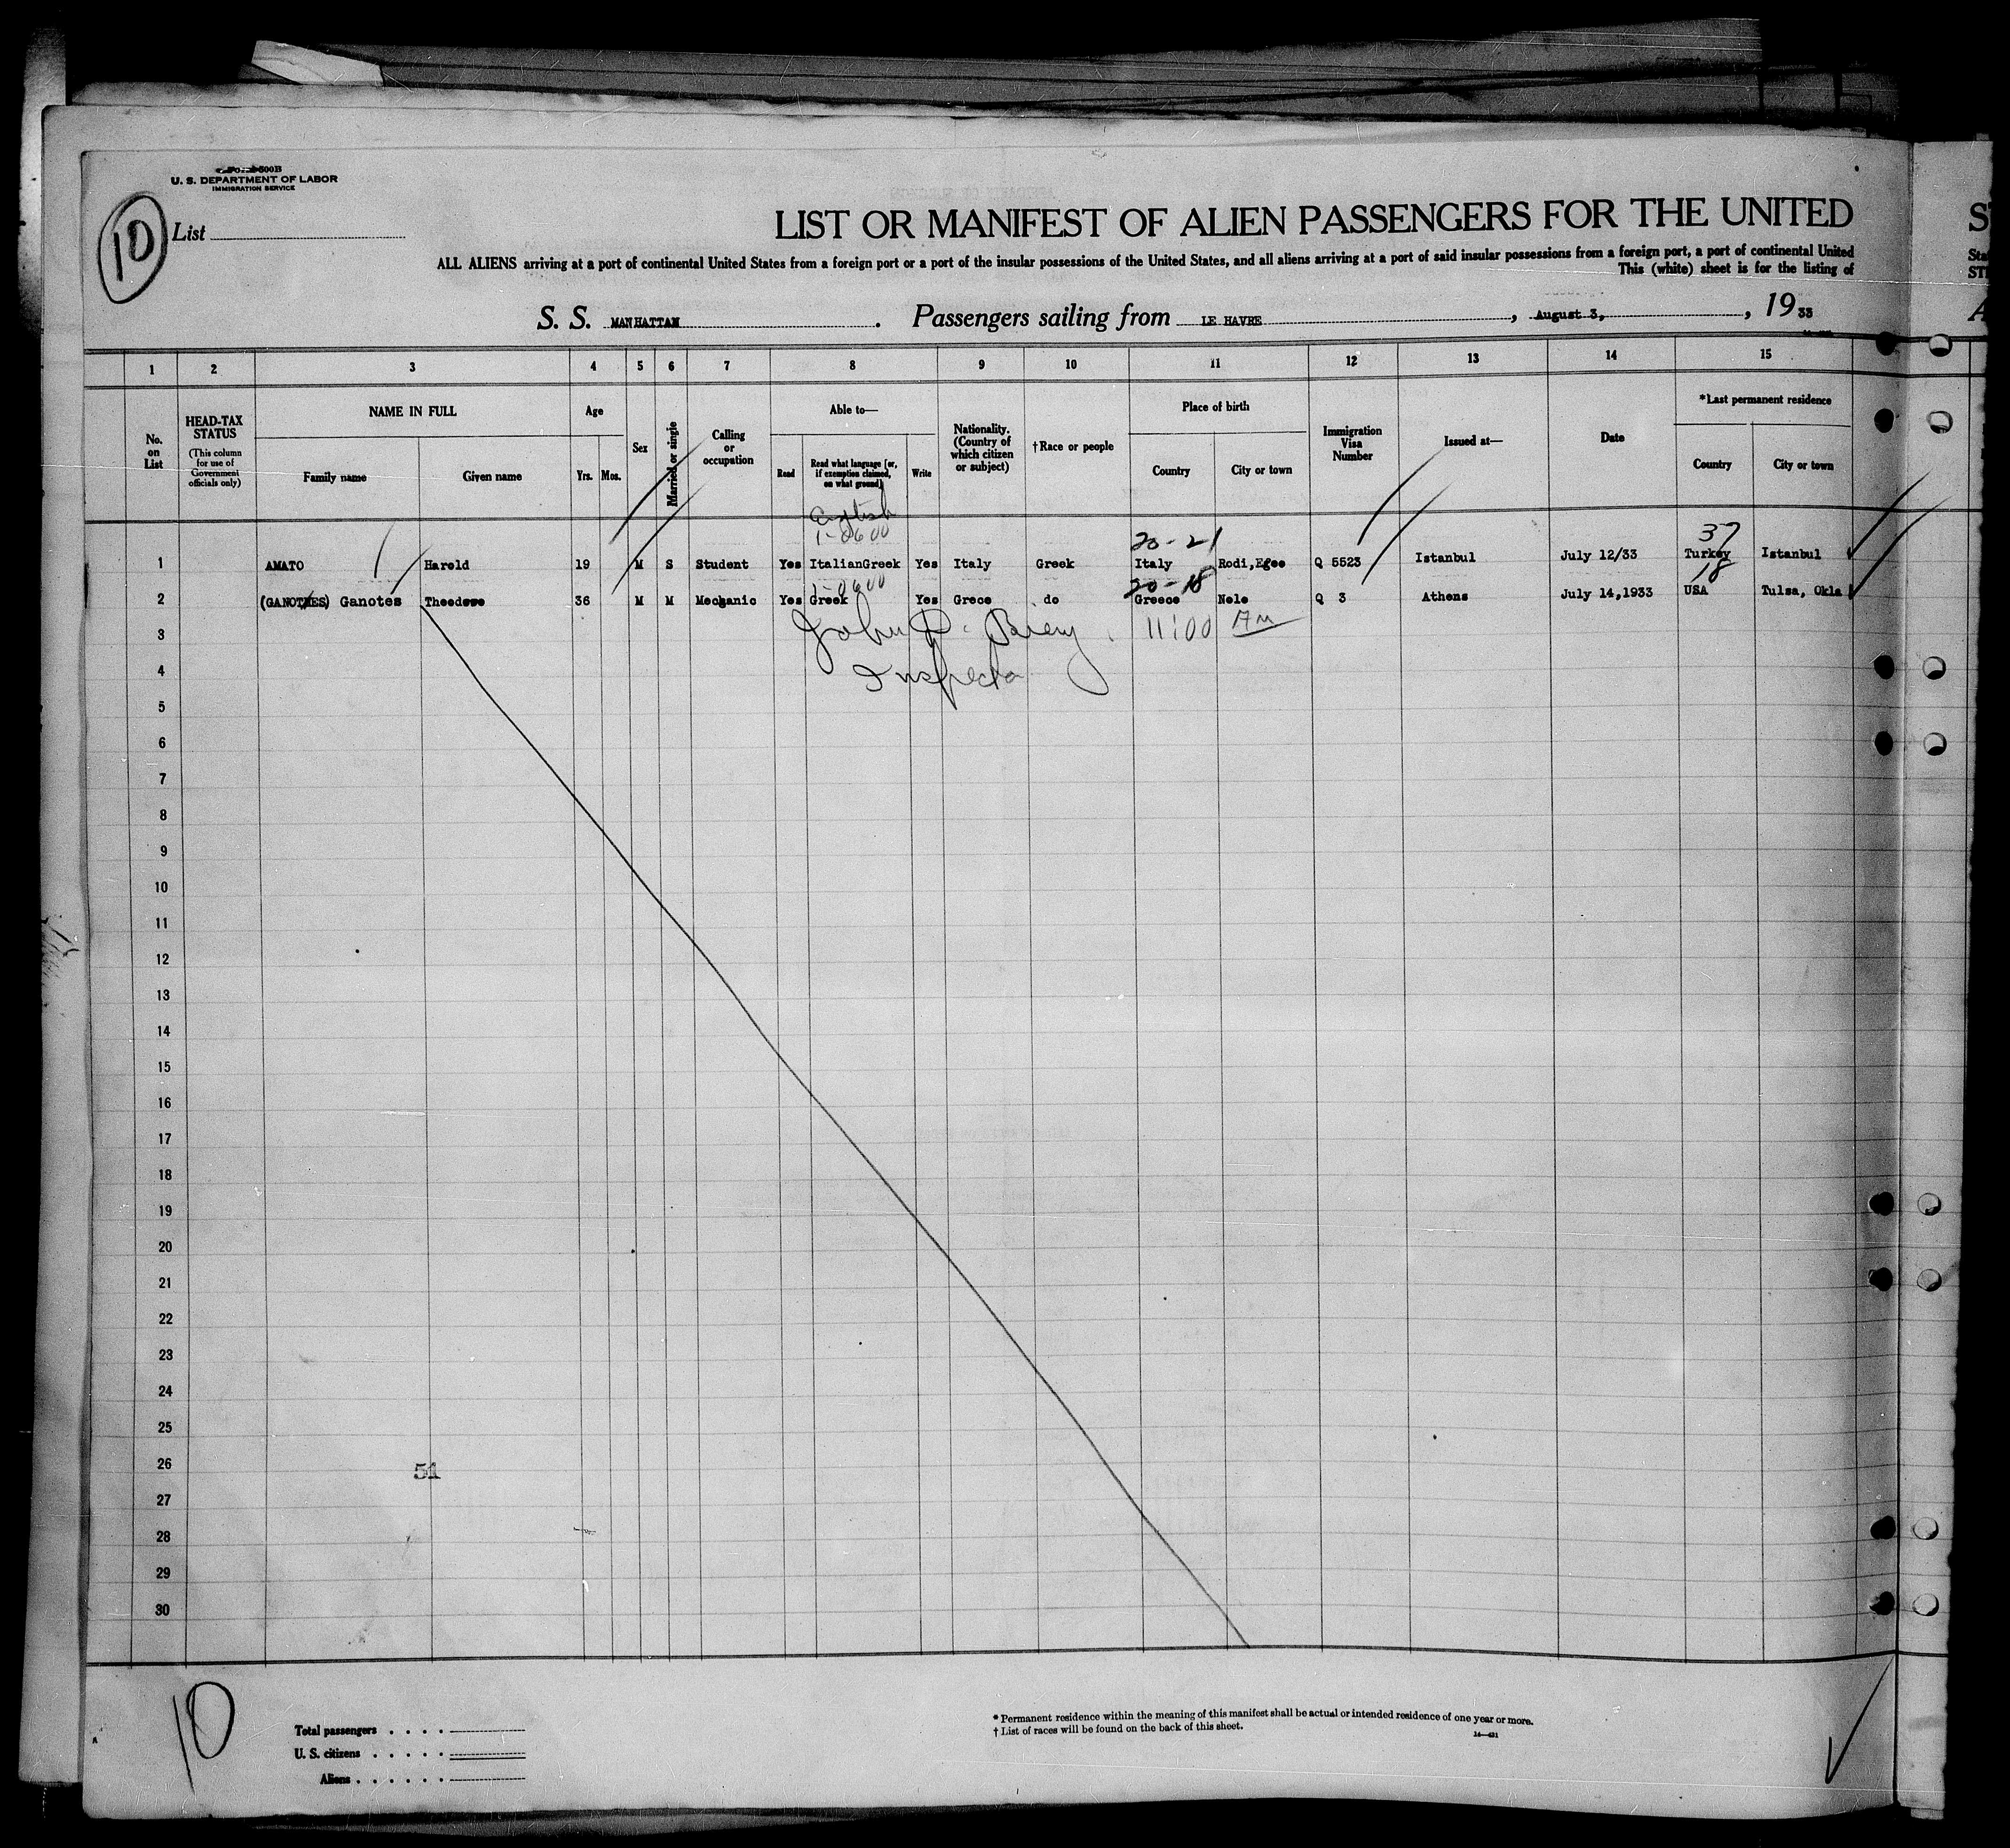 500B
U. S. DEPARTMENT OF LABOR
IMMIGRATION SERVICE
10
List
LIST OR MANIFEST OF ALIEN PASSENGERS FOR THE UNITED
ALL ALIENS arriving at a port of continental United States from a foreign port or a port of the insular possessions of the United States, and all aliens arriving at a port of said insular possessions from a foreign port, a port of continental United
This (white) sheet is for the listing of
S. S. MANHATTAN . Passengers sailing from LE HAVRE , August 3, , 19 33
1 2 3 4 5 6 7 8 9 10 11 12 13 14 15
No. on List
HEAD-TAX STATUS (This column for use of Government officials only)
NAME IN FULL
Family name Given name
Age
Yrs. Mos.
Sex
Married or single
Calling or occupation
Able to—
Read Read what language [or, if exemption claimed, on what ground] Write
Nationality. (Country of which citizen or subject)
†Race or people
Place of birth
Country City or town
Immigration Visa Number
Issued at—
Date
*Last permanent residence
Country City or town
English
1-0600
20-21
37
1 AMATO Harold 19 M S Student Yes ItalianGreek Yes Italy Greek Italy Rodi,Egee Q 5523 Istanbul July 12/33 Turkey Istanbul
1-0600
20-18
18
2 Ganotes 36 M M Mechanic Yes Greek Yes Grece do Greece Nele Q 3 Athens July 14,1933 USA Tulsa, Okla
3 John P. 11:00 AM
4 Inspector
5
6
7
8
9
10
11
12
13
14
15
16
17
18
19
20
21
22
23
24
25
26 51
27
28
29
30
10
Total passengers . . . .
U. S. citizens . . . . .
Aliens . . . . . .
* Permanent residence within the meaning of this manifest shall be actual or intended residence of one year or more.
† List of races will be found on the back of this sheet.
14—421